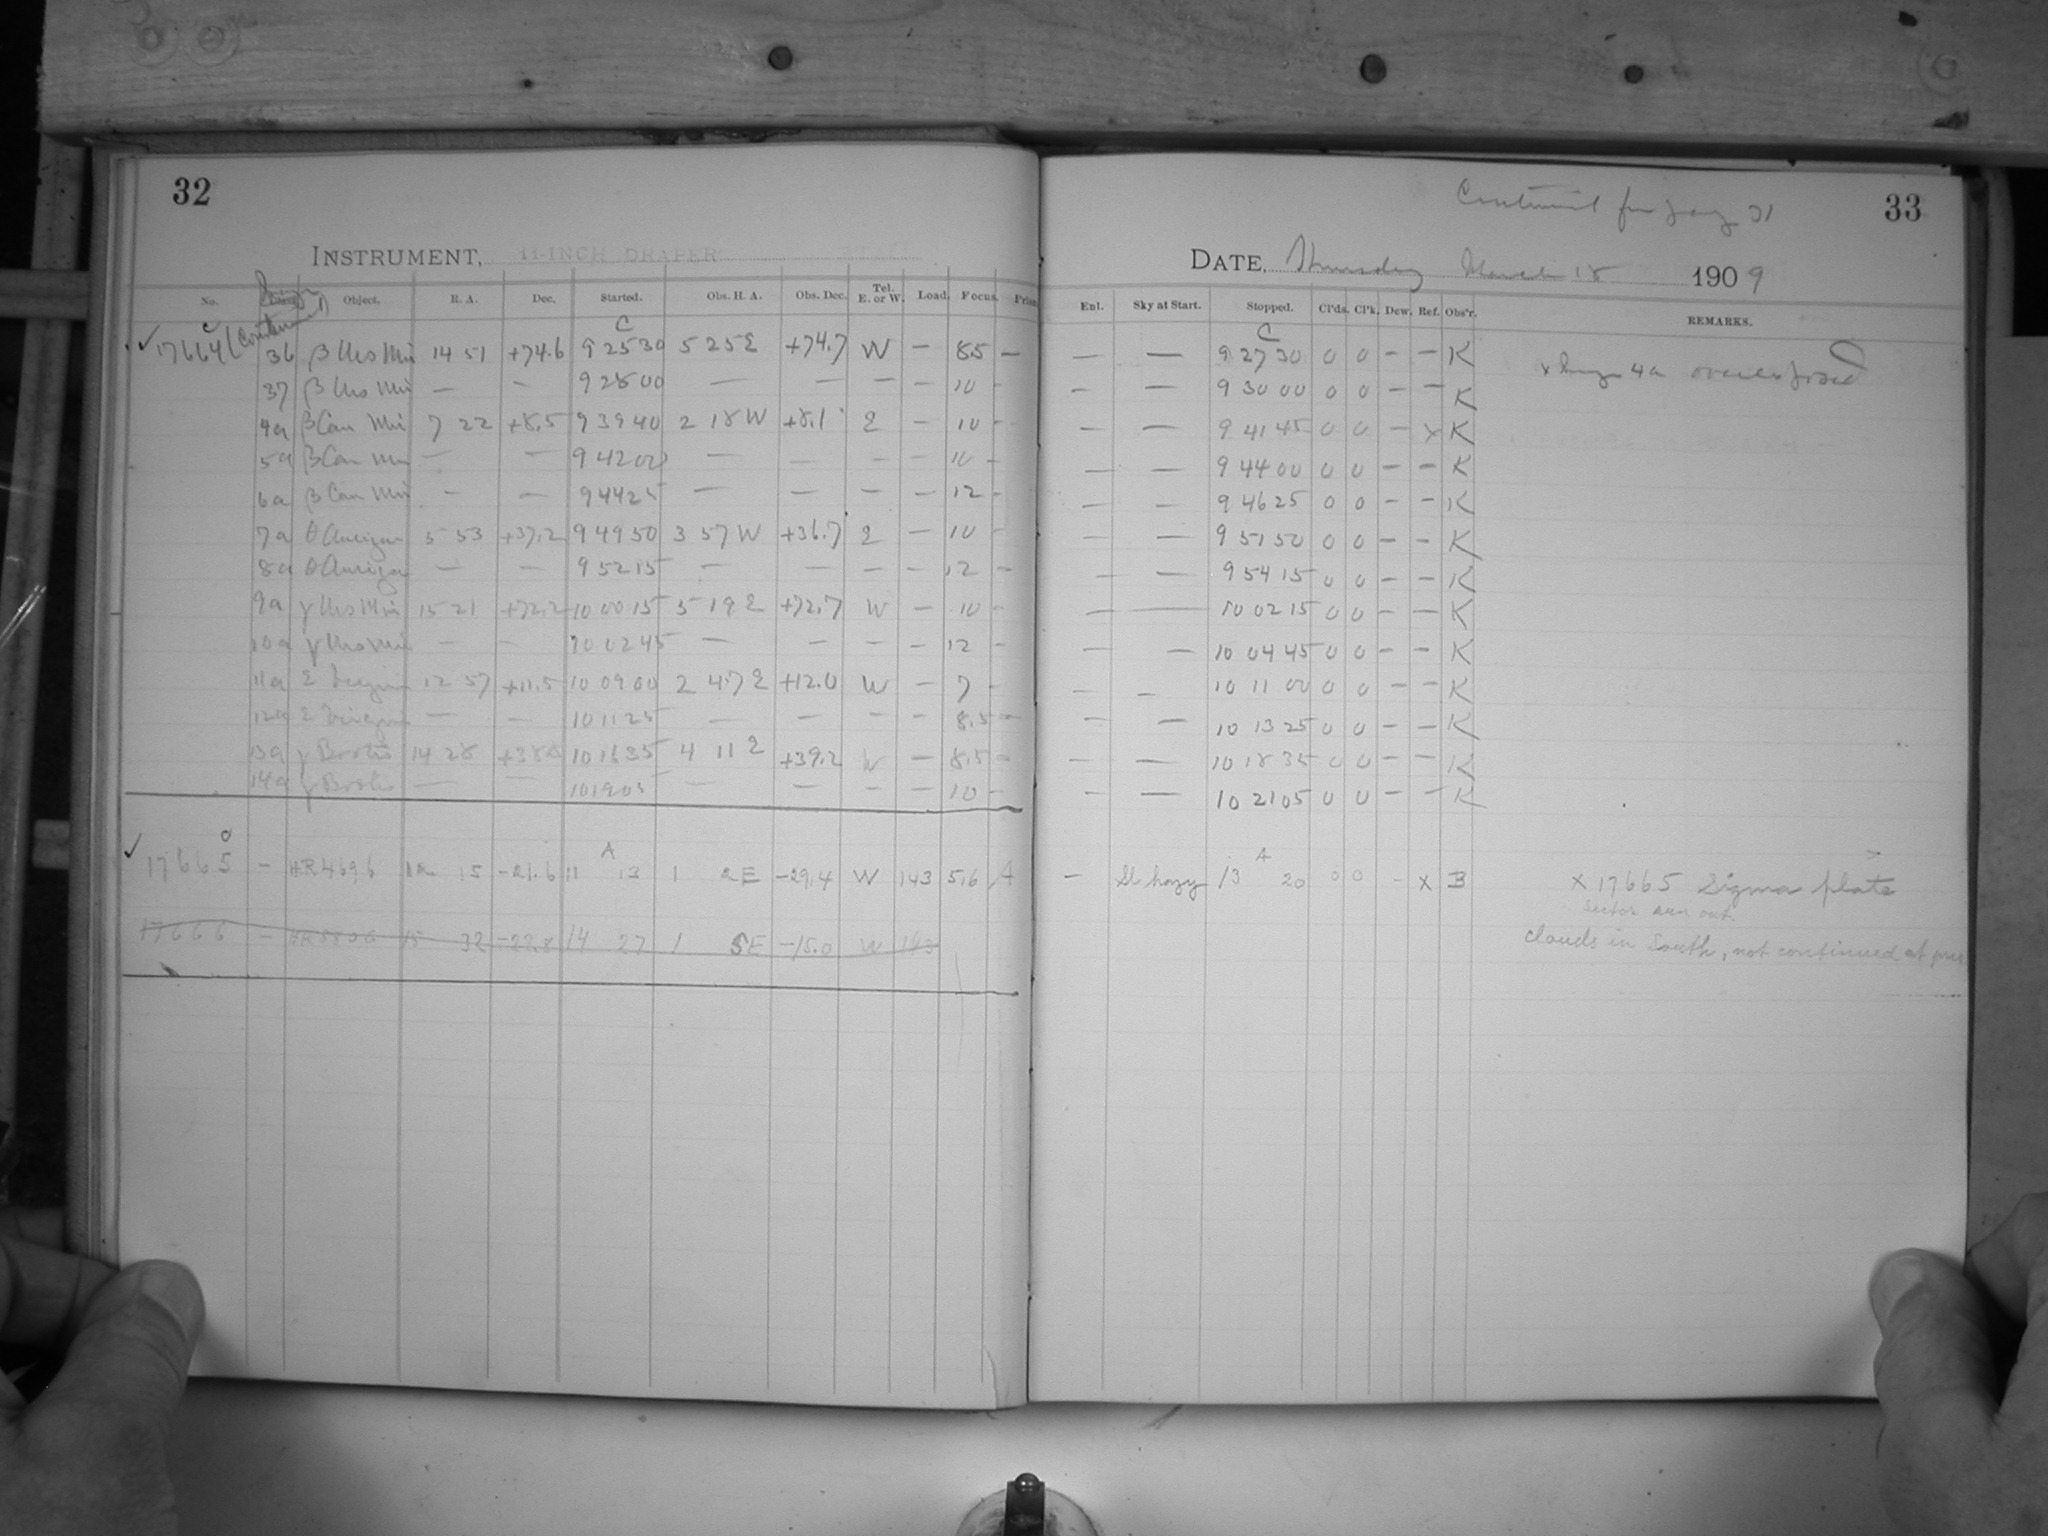 32
INSTRUMENT, 11-INCH DRAPER
No. Object. R. A. Dec. Started. Obs. H. A. Obs. Dec. Tel. E. or W. Load. Focus.
C
17664 (Continued) 36 β Urs Min 14 51 +74.6 9 25 30 5 25 E +74.7 W — 8.5 —
37 β Urs Min — — 9 28 00 — — — — 10 -
4a β Can Min 7 22 +8.5 9 39 40 2 18 W +8.1 E — 10 -
5a β Can Min — — 9 42 00 — — — — 10 -
6a β Can Min — — 9 44 25 — — — — 12 -
7a θ Aurigae 5 53 +37.2 9 49 50 3 57 W +36.7 E — 10 -
8a θ Aurigae — — 9 52 15 — — — — 12 -
9a γ Urs Min 15 21 +72.2 10 00 15 5 19 E +72.7 W — 10 -
10a γ Urs Min — — 10 02 45 — — — — 12 -
11a ε Virginis 12 57 +11.5 10 09 00 2 47 E +12.0 W — 7 -
12a ε Virginis — — 10 11 25 — — — — 8.5 -
13a γ Bootis 14 28 10 16 35 4 11 E +39.2 W — 8.5 -
14a γ Bootis — — 10 19 05 — — — — 10 -
A
17665 - HR 4696 12 15 -21.6 11 13 1 2 E -29.4 W 143 5.6 A
17666 - 15 32 -22.8 14 27 1 5 E -15.0 W 143
33
Continued from page 31
DATE, Thursday March 18 1909
Enl. Sky at Start. Stopped. Cl'ds. Cl'k. Dew. Ref. Obs'r. REMARKS.
C
— — 9 27 30 0 0 - - K x Image 4a overexposed
- — 9 30 00 0 0 - - K
— — 9 41 45 0 0 - x K
— — 9 44 00 0 0 - - K
— — 9 46 25 0 0 - - K
— — 9 51 50 0 0 - - K
— — 9 54 15 0 0 - - K
— — 10 02 15 0 0 - - K
— — 10 04 45 0 0 - - K
— - 10 11 00 0 0 - - K
— — 10 13 25 0 0 - - K
— — 10 18 35 0 0 - - K
— — 10 21 05 0 0 - - K
A
- Sl hazy 13 20 0 0 - x B x 17665 Sigma plate
sector run out.
clouds in South, not continued at